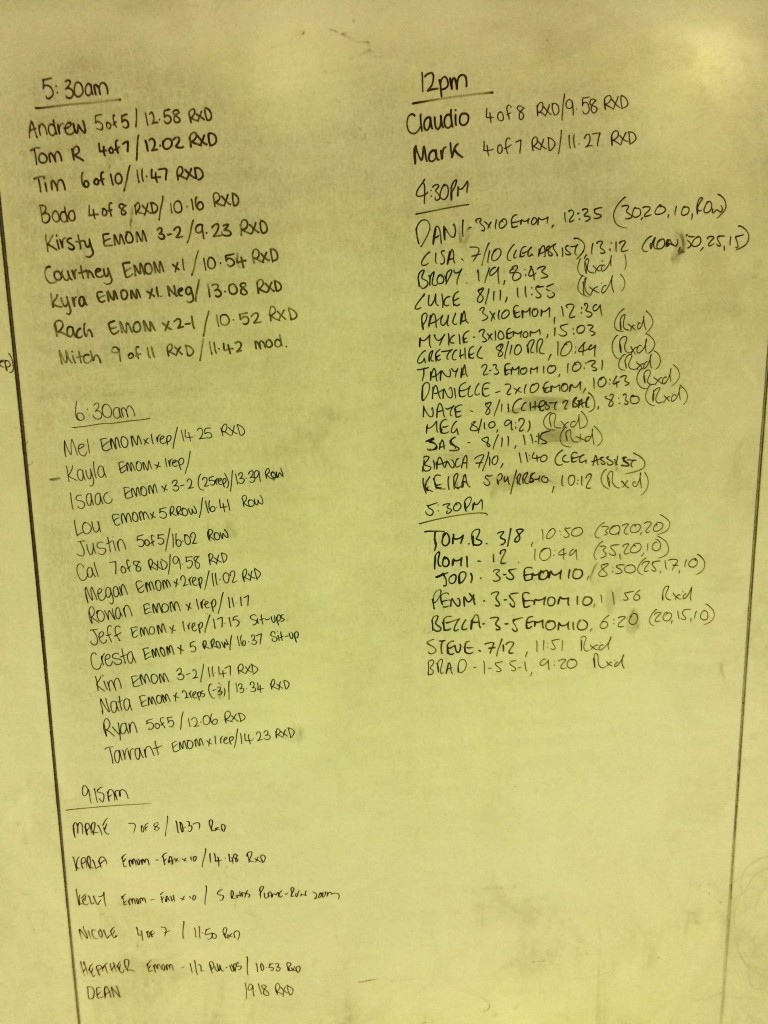 5:30am
Andrew 5of5/12.58 RXD
Tom R 4of7/12.02 RXD
Tim 6of10/11.47 RXD
Bodo 4of8 RXD/10.16 RXD
Kirsty EMOM 3-2/9.23 RXD
Courtney EMOM x1/10.54 RXD
Kyra EMOM x1. Neg/13.08 RXD
Rach EMOM x2-1/10.52 RXD
Mitch 9 of 11 RXD/11.42 mod.
6:30am
Mel EMOMx1rep/14.25 RXD
- Kayla EMOMx1rep/
Isaac EMOM x 3-2 (25rep)/13.39 ROW
Lou EMOMx5RROW/16.41 ROW
Justin 5of5/16.02 ROW
Cal 7of8 RXD/9.58 RXD
Megan EMOMx2rep/11.02 RXD
Rowan EMOM x1rep/11.17
Jeff EMOMx1rep/17.15 Sit-ups
Cresta EMOM x 5 RROW/16.37 Sit-up
Kim EMOM 3-2/11.47 RXD
Nata EMOM x 2reps (-3)/13.34 RXD
Ryan 5of5/12.06 RXD
Tarrant EMOMx1rep/14.23 RXD
915AM
MARIE 7 OF 8/10.37
KARLA EMOM - x10/14.48 RXD
KELLY EMOM - x10/5 PLANK-RUN 200m
NICOLE 4 OF 7/11.50 RXD
HEATHER EMOM - 1/2 PULL-UPS/10.53 RXD
DEAN 19.18 RXD
12pm
Claudio 4of8 RXD/9.58 RXD
Mark 4of7 RXD/11.27 RXD
4:30PM
DANI-3x10EMOM, 12:35 (30,20,10,ROW)
LISA. 7/10 (LEG ASSIST), 13:12 (ROW, 50,25,15)
BRODY 1/9, 8:43 (Rxd)
LUKE 8/11, 11:55 (Rxd)
PAULA 3x10EMOM, 12:39
MYKIE-3x10EMOM, 15:03 (Rxd)
GRETCHEL 8/10 RR, 10:49 (Rxd)
TANYA 2-3 EMOM10, 10:31 (Rxd)
DANIELLE-2x10EMOM, 10:43 (Rxd)
NATE - 8/11 (CHEST 2 BAR), 8:30 (Rxd)
MEG 8/10, 9:21 (Rxd)
SAS - 8/11, 11:15 (Rxd)
BIANCA 7/10, 11:40 (LEG ASSIST)
KEIRA 5 PU/, 10:12 (Rxd)
5:30PM
TOM.B. 3/8, 10:50 (30,20,20)
ROMI - 12 10:49 (35,20,10)
JODI - 3-5 EMOM10, 8:50 (25,17,10)
PENNI - 3-5EMOM10, 11:56 Rxd
BELLA - 3-5EMOM10, 6:20 (20,15,10)
STEVE - 7/12, 11:51 Rxd
BRAD - 1-5 5-1, 9:20 Rxd